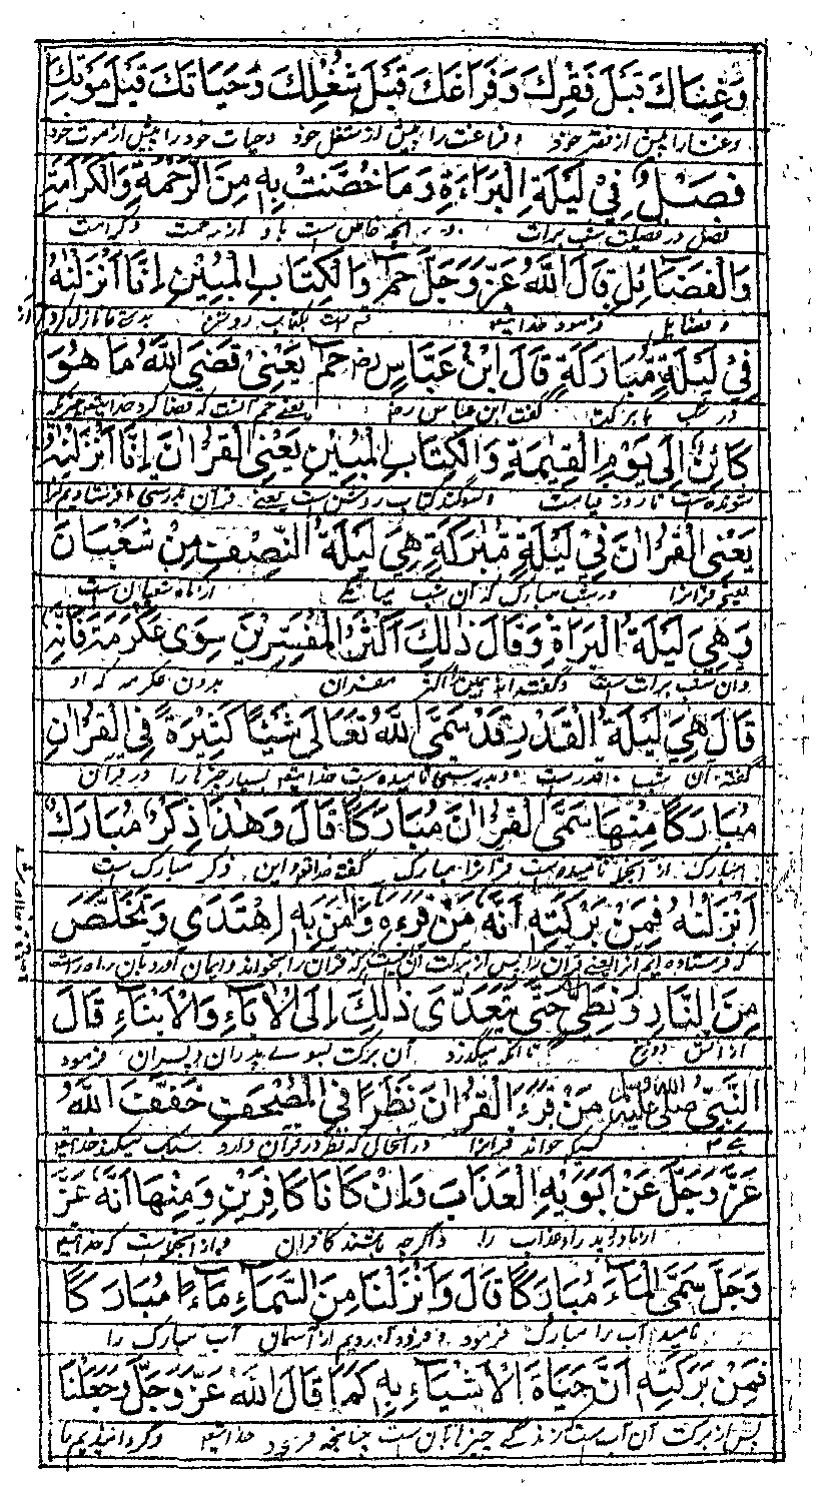 وَغِنَاكَ قَبْلَ فَقْرِكَ وَفَرَاغَكَ قَبْلَ شُغْلِكَ وَحَيَاتَكَ قَبْلَ مَوْتِكَ
وغنا را پیش از فقر خود و فراغت را پیش از شغل خود وحیات خود را پیش از موت خود
فَصْلٌ فِيْ لَيْلَةِ الْبَرَاءَةِ وَمَا خُصَّتْ بِهِ مِنَ الرَّحْمَةِ وَالْكَرَامَةِ
فصل در فضیلت شب برات و در آنچه خاص است باو از رحمت وکرامت
وَالْفَضَائِلِ قَالَ اللّٰهُ عَزَّ وَجَلَّ حٰمٓ وَالْكِتَابِ الْمُبِيْنِ اِنَّا اَنْزَلْنٰهُ
و فضایل فرمود خدایتعالی قسم است بکتاب روشن
فِيْ لَيْلَةٍ مُّبَارَكَةٍ قَالَ ابْنُ عَبَّاسٍ رض حٰمٓ يَعْنِيْ قَضَى اللّٰهُ مَا هُوَ
در شب با برکت گفت ابن عباس رض یعنے حم آنست که قضا کرد خدایتعالی
كَائِنٌ اِلٰى يَوْمِ الْقِيٰمَةِ وَالْكِتَابِ الْمُبِيْنِ يَعْنِى الْقُرْاٰنَ اِنَّا اَنْزَلْنٰهُ
شونده است تا روز قیامت سوگند کتاب روشن است یعنے قرآن
يَعْنِى الْقُرْاٰنَ فِيْ لَيْلَةٍ مُّبٰرَكَةٍ هِيَ لَيْلَةُ النِّصْفِ مِنْ شَعْبَانَ
یعنے قرآنرا در شب مبارک که آن شب از ماه شعبان ست
وَهِيَ لَيْلَةُ الْبَرَاةِ وَقَالَ ذٰلِكَ اَكْثَرُ الْمُفَسِّرِيْنَ سِوٰى عِكْرَمَةَ فَاِنَّهُ
وآن شب برات ست وگفته اند اکثر مفسران بدون عکرمه که او
قَالَ هِيَ لَيْلَةُ الْقَدْرِ قَدْ سَمَّى اللّٰهُ تَعَالٰى شَيْئًا كَثِيْرَةً فِي الْقُرْاٰنِ
گفته آن شب قدرست نامیده ست خدایتعالی بسیار چیزها را در قرآن
مُبَارَكًا مِنْهَا سَمَّى الْقُرْاٰنَ مُبَارَكًا قَالَ وَهٰذَا ذِكْرٌ مُبَارَكٌ
مبارک از آنجمله نامیده است قرآنرا مبارک گفته واین ذکر مبارک ست
اَنْزَلْنٰهُ فَمِنْ بَرَكَتِهِ اَنَّهُ مَنْ قَرَءَهُ وَاٰمَنَ بِهِ اِهْتَدٰى وَتَخَلَّصَ
که فرستاده ایم آنرا یعنے قرآن را پس از برکت آن ست که قرآن را بخواند وایمان آورد بآن
مِنَ النَّارِ حَتّٰى يَتَعَدّٰى ذٰلِكَ اِلَى الْاٰبَاءِ وَالْاَبْنَاءِ قَالَ
از آتش دوزخ تا آنکه میگذرد آن برکت بسوے پدران وپسران فرمود
النَّبِيُّ صلى الله عليه وسلم مَنْ قَرَءَ الْقُرْاٰنَ نَظَرًا فِي الْمُصْحَفِ خَفَّفَ اللّٰهُ
کسیکه خواند قرآنرا در آنحالی که نظر در قرآن دارد سبک میکند خدایتعالی
عَزَّ وَجَلَّ عَنْ اَبَوَيْهِ الْعَذَابَ وَاِنْ كَانَا كَافِرَيْنِ وَمِنْهَا اَنَّهُ عَزَّ
عذاب را واگرچه باشند کافران وازآنجمله است که خدایتعالی
وَجَلَّ سَمَّى الْمَاءَ مُبَارَكًا قَالَ وَاَنْزَلْنَا مِنَ السَّمَاءِ مَاءً مُبَارَكًا
نامید آب را مبارک فرمود و فرود آوردیم از آسمان آب مبارک را
فَمِنْ بَرَكَتِهِ اَنَّ حَيَاةَ الْاَشْيَاءِ بِهِ كَمَا قَالَ اللّٰهُ عَزَّ وَجَلَّ وَجَعَلْنَا
پس از برکت آن آب ست که زندگے چیزها بآن ست چنانچه فرمود خدایتعالی وگردانیدیم ما